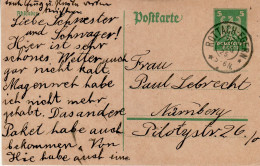 Postkarte
Liebe Schwester
und Schwager!
Hier ist sehr
schönes Wetter auch
gar nicht kalt.
Magenweh habe
ich nicht mehr
gehabt. Das andere
Paket habe auch
bekommen. Von
Hie habe auch eine
Frau
Paul Lebrecht
Nürnberg
Pilotystr. 26